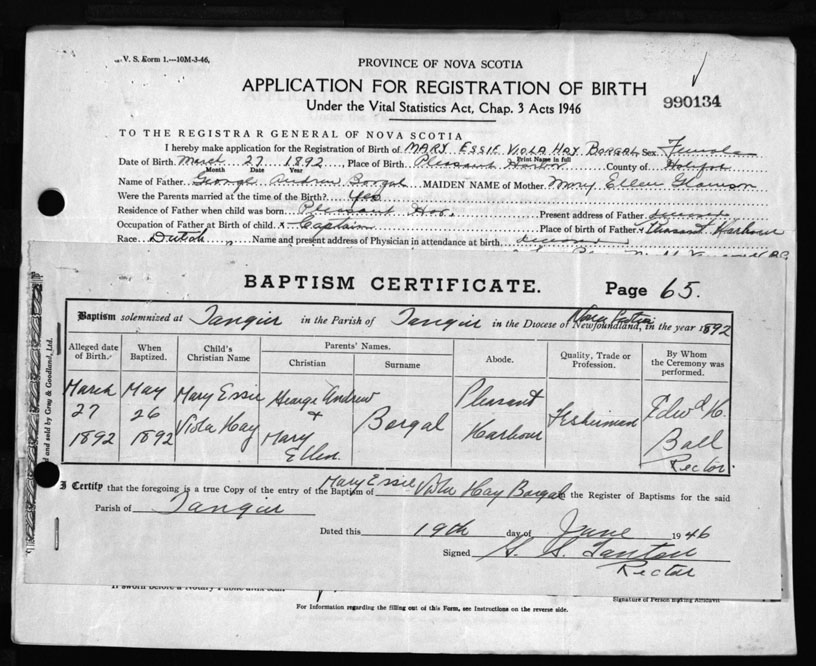 V. S. Form 1.—10M-3-46.
PROVINCE OF NOVA SCOTIA
APPLICATION FOR REGISTRATION OF BIRTH
Under the Vital Statistics Act, Chap. 3 Acts 1946
990134
TO THE REGISTRAR GENERAL OF NOVA SCOTIA
I hereby make application for the Registration of Birth of MARY ESSIE VIOLA HAY BORGAL Sex Female
Print Name in full
Date of Birth March 27 1892, Place of Birth Pleasant Harbor County of Halifax
Month Date Year
Name of Father George Andrew Borgal MAIDEN NAME of Mother Mary Ellen
Were the Parents married at the time of the Birth? Yes
Residence of Father when child was born Pleasant Har. Present address of Father
Occupation of Father at Birth of child Captain Place of birth of Father Pleasant Harbour
Race Dutch Name and present address of Physician in attendance at birth
BAPTISM CERTIFICATE. Page 65.
Baptism solemnized at Tangier in the Parish of Tangier in the Diocese of Nova Scotia Newfoundland, in the year 1892
Alleged date of Birth. When Baptized. Child's Christian Name Parents' Names. Christian Surname Abode. Quality, Trade or Profession. By Whom the Ceremony was performed.
March 27 1892 May 26 1892 Mary Essie Viola Hay George Andrew + Mary Ellen Borgal Pleasant Harbour Fisherman Edwd H. Ball Rector.
and sold by Gray & Goodland, Ltd.
I Certify that the foregoing is a true Copy of the entry of the Baptism of Mary Essie Viola Hay Borgal the Register of Baptisms for the said
Parish of Tangier
Dated this 19th day of June 1946
Signed
Rector
Signature of Person making Affidavit
For Information regarding the filling out of this Form, see Instructions on the reverse side.